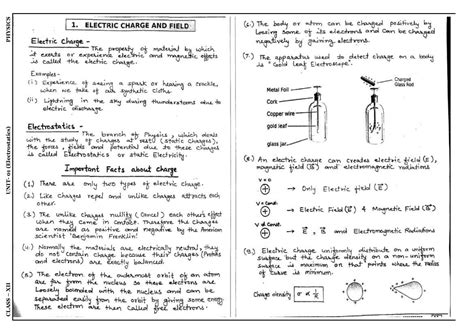 PHYSICS
UNIT- 01 (Electrostatics)
CLASS - XII
1. ELECTRIC CHARGE AND FIELD
Electric Charge -
The property of material by which
it exerts or experience electric and magnetic effects
is called the electric charge.
Examples-
(i) Experience of seeing a spark or hearing a crackle,
when we take off our synthetic cloths
(ii) Lightning in the sky during thunderstorms due to
electric discharge.
Electrostatics -
The branch of Physics, which deals
with the study of charges at rest (static charges),
the forces, fields and potential due to these charges
is called Electrostatics or static Electricity.
Important Facts about charge
(1.) There are only two types of electric charge.
(2.) Like charges repel and unlike charges attracts each
other.
(3.) The unlike charges nullify (Cancel) each other's effect
when they came in contact. Therefore the charges
are named as positive and negative by the American
scientist 'Benjamin Franklin'
(4.) Normally the materials are electrically neutral, they
do not contain charge because their charges (Protons
and electrons) are exactly balanced.
(5.) The electrons of the outermost orbit of an atom
are far from the nucleus so these electrons are
Loosely bounded with the nucleus and can be
separated easily from the orbit by giving some energy.
These electrons are then called free electrons.
(6.) The body or atom can be charged positively by
Loosing some of its electrons and can be charged
negatively by gaining electrons.
(7.) The apparatus used to detect charge on a body
is "Gold leaf Electroscope".
Charged
Glass Rod
Metal Foil
Cork
Copper wire
gold leaf
glass jar
(8.) An electric charge can creates electric field (E),
magnetic field (B) and electromagnetic radiations
V = 0
⊕ → Only Electric field (E)
V = Const.
⊕ → Electric Field (E) & Magnetic Field (B)
V ≠ Const.
⊕ → E, B and Electromagnetic Radiations
(9.) Electric charge uniformly distribute on a uniform
surface but the charge density on a non-uniform
surface is maximum on that points where the radius
of curve is minimum.
Charge density